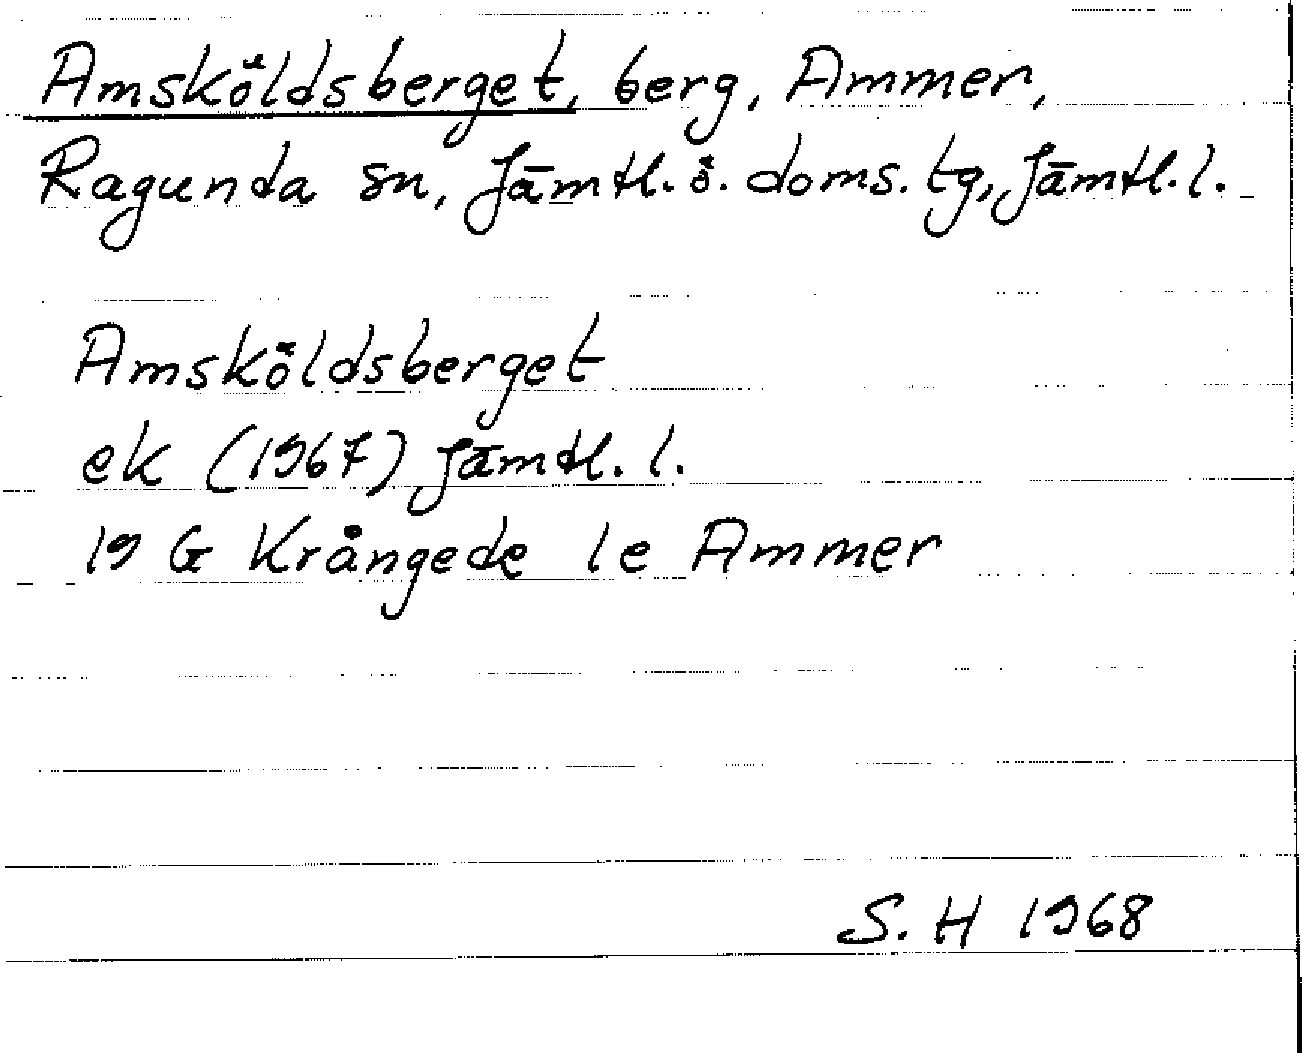 Amsköldsberget, berg, Ammer,
Ragunda sn, Jämtl. ö. doms. tg, Jämtl. l.
Amsköldsberget
ek (1967) Jämtl. l.
19 G Krångede 1e Ammer
S. H 1968